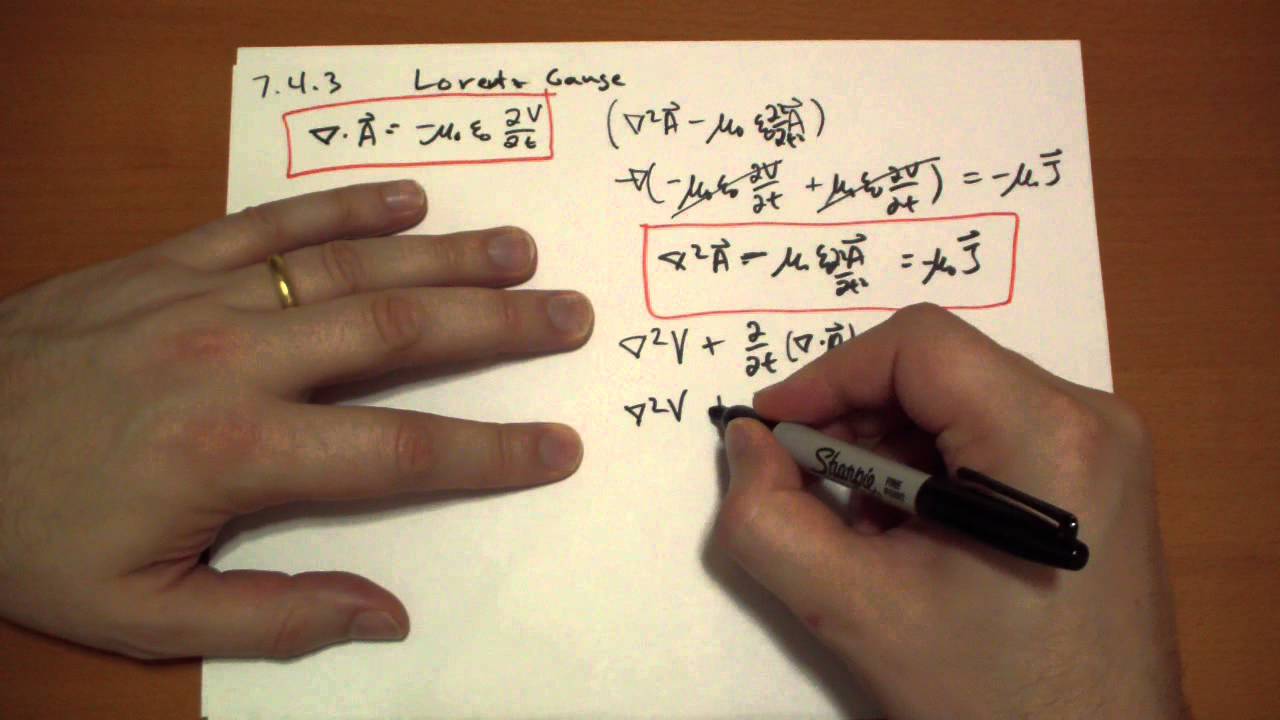 7.4.3 Lorentz Gauge
∇·A⃗ = -μ₀ε₀ ∂V/∂t
(∇²A⃗ - μ₀ε₀ ∂²A⃗/∂t²)
-∇(-μ₀ε₀ ∂V/∂t + μ₀ε₀ ∂V/∂t) = -μ₀J⃗
∇²A⃗ - μ₀ε₀ ∂²A⃗/∂t² = -μ₀J⃗
∇²V + ∂/∂t (∇·A⃗)
∇²V +
Sharpie FINE